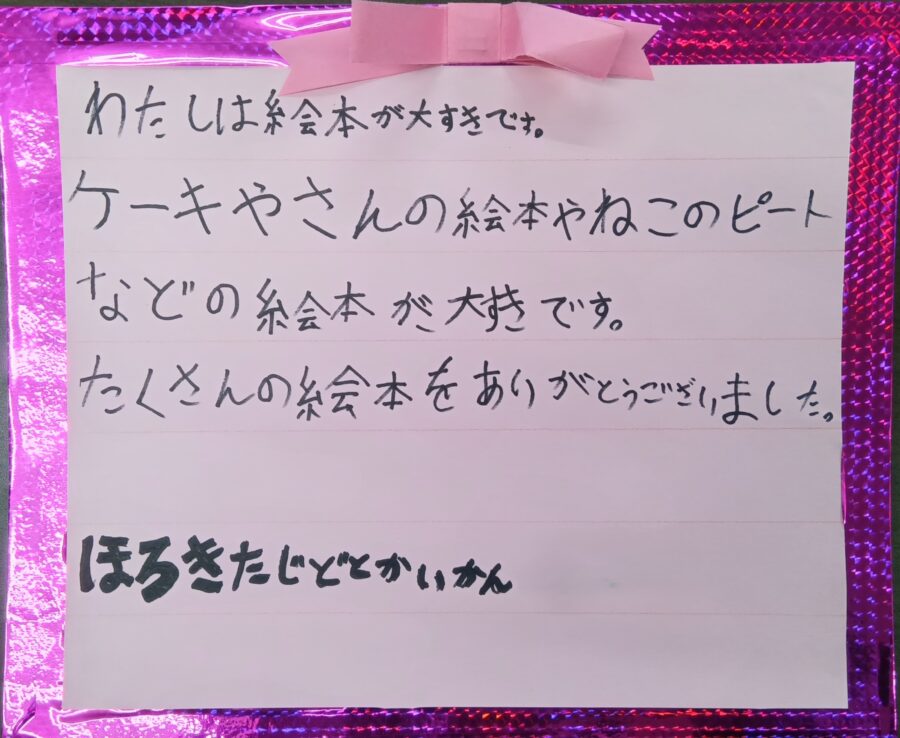 わたしは絵本が大すきです。
ケーキやさんの絵本やねこのピート
などの絵本が大すきです。
たくさんの絵本をありがとうございました。
ほろきたじどとかいかん